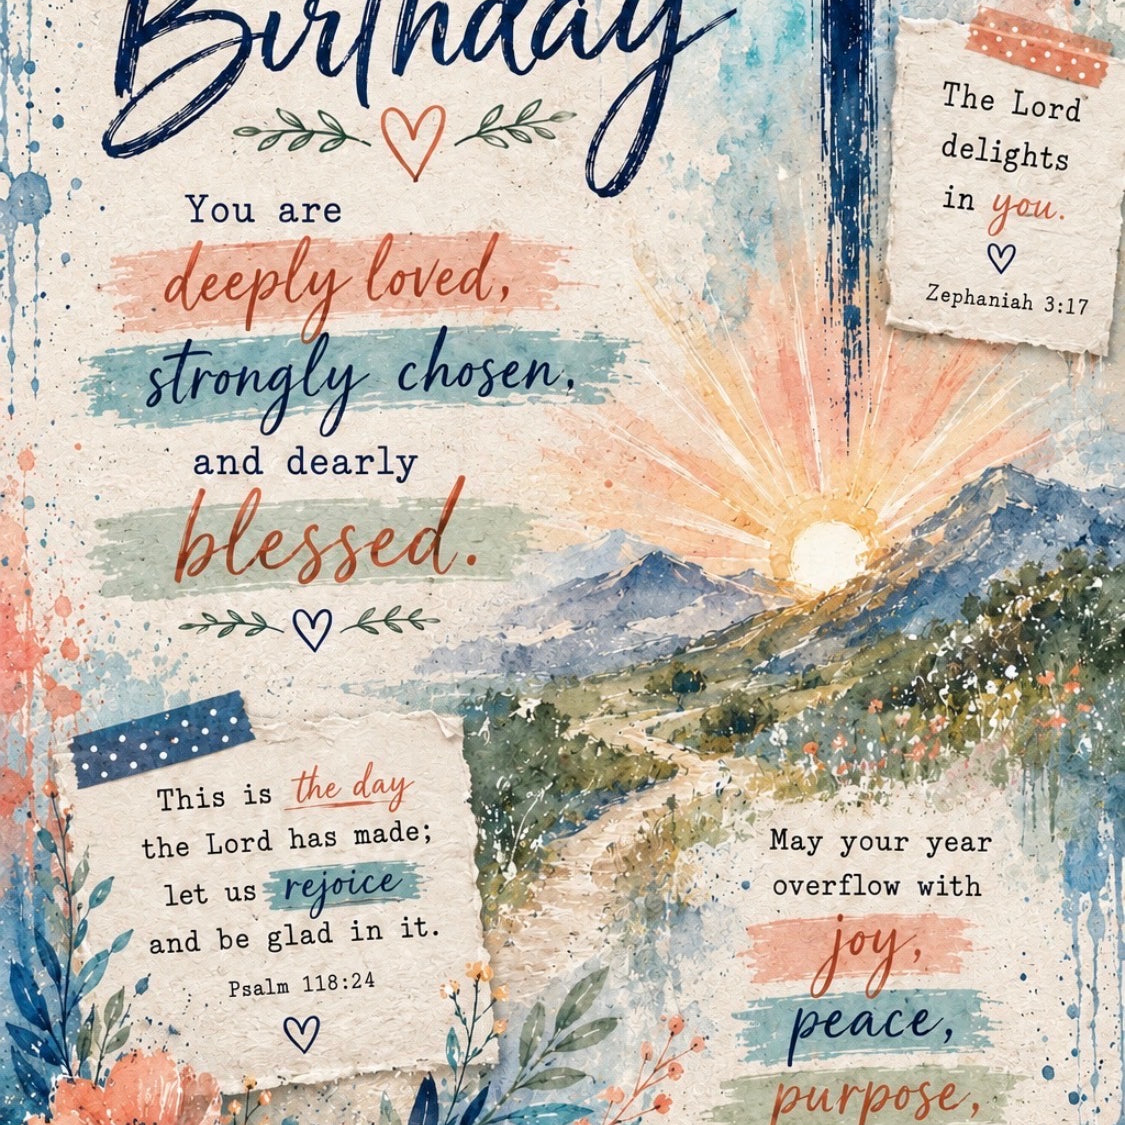 Birthday
You are
deeply loved,
strongly chosen,
and dearly
blessed.
The Lord
delights
in you.
Zephaniah 3:17
This is the day
the Lord has made;
let us rejoice
and be glad in it.
Psalm 118:24
May your year
overflow with
joy,
peace,
purpose,